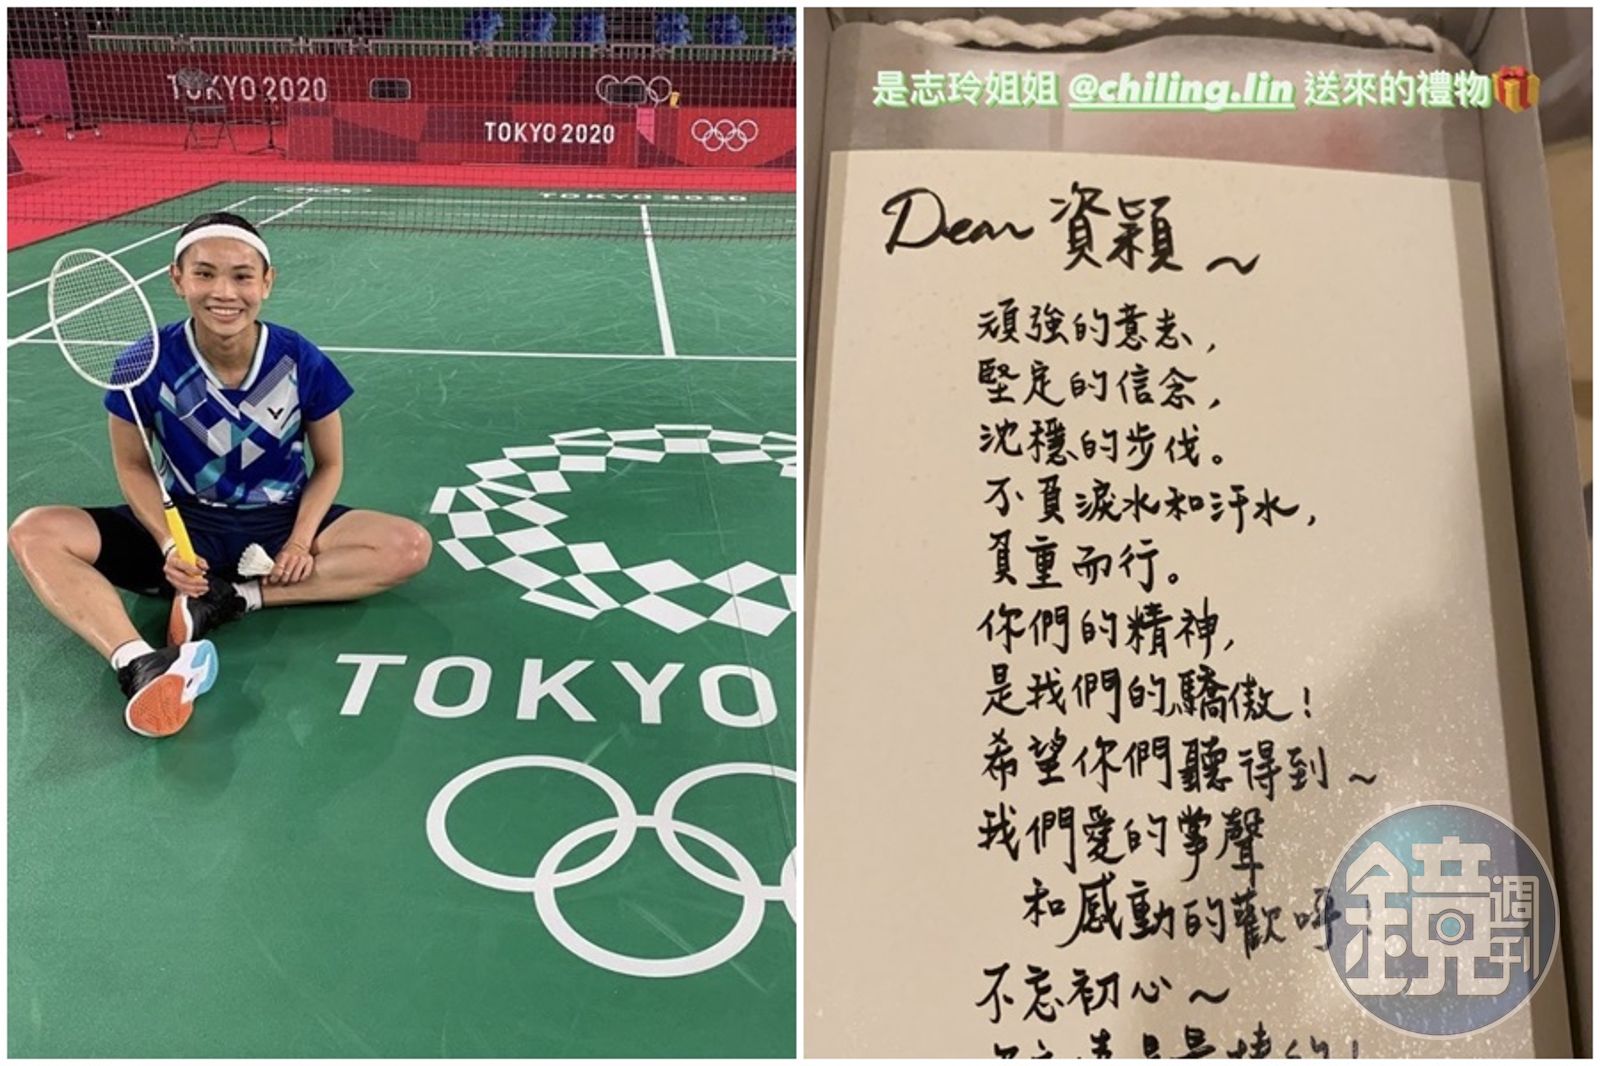 TOKYO 2020
TOKYO 2020
TOKYO 2020
TOKYO
是志玲姐姐 @chiling.lin 送來的禮物🎁
Dear 資穎~
頑強的意志,
堅定的信念,
沈穩的步伐。
不負淚水和汗水,
負重而行。
你們的精神,
是我們的驕傲!
希望你們聽得到~
我們愛的掌聲
和感動的歡呼!
不忘初心~
鏡週刊